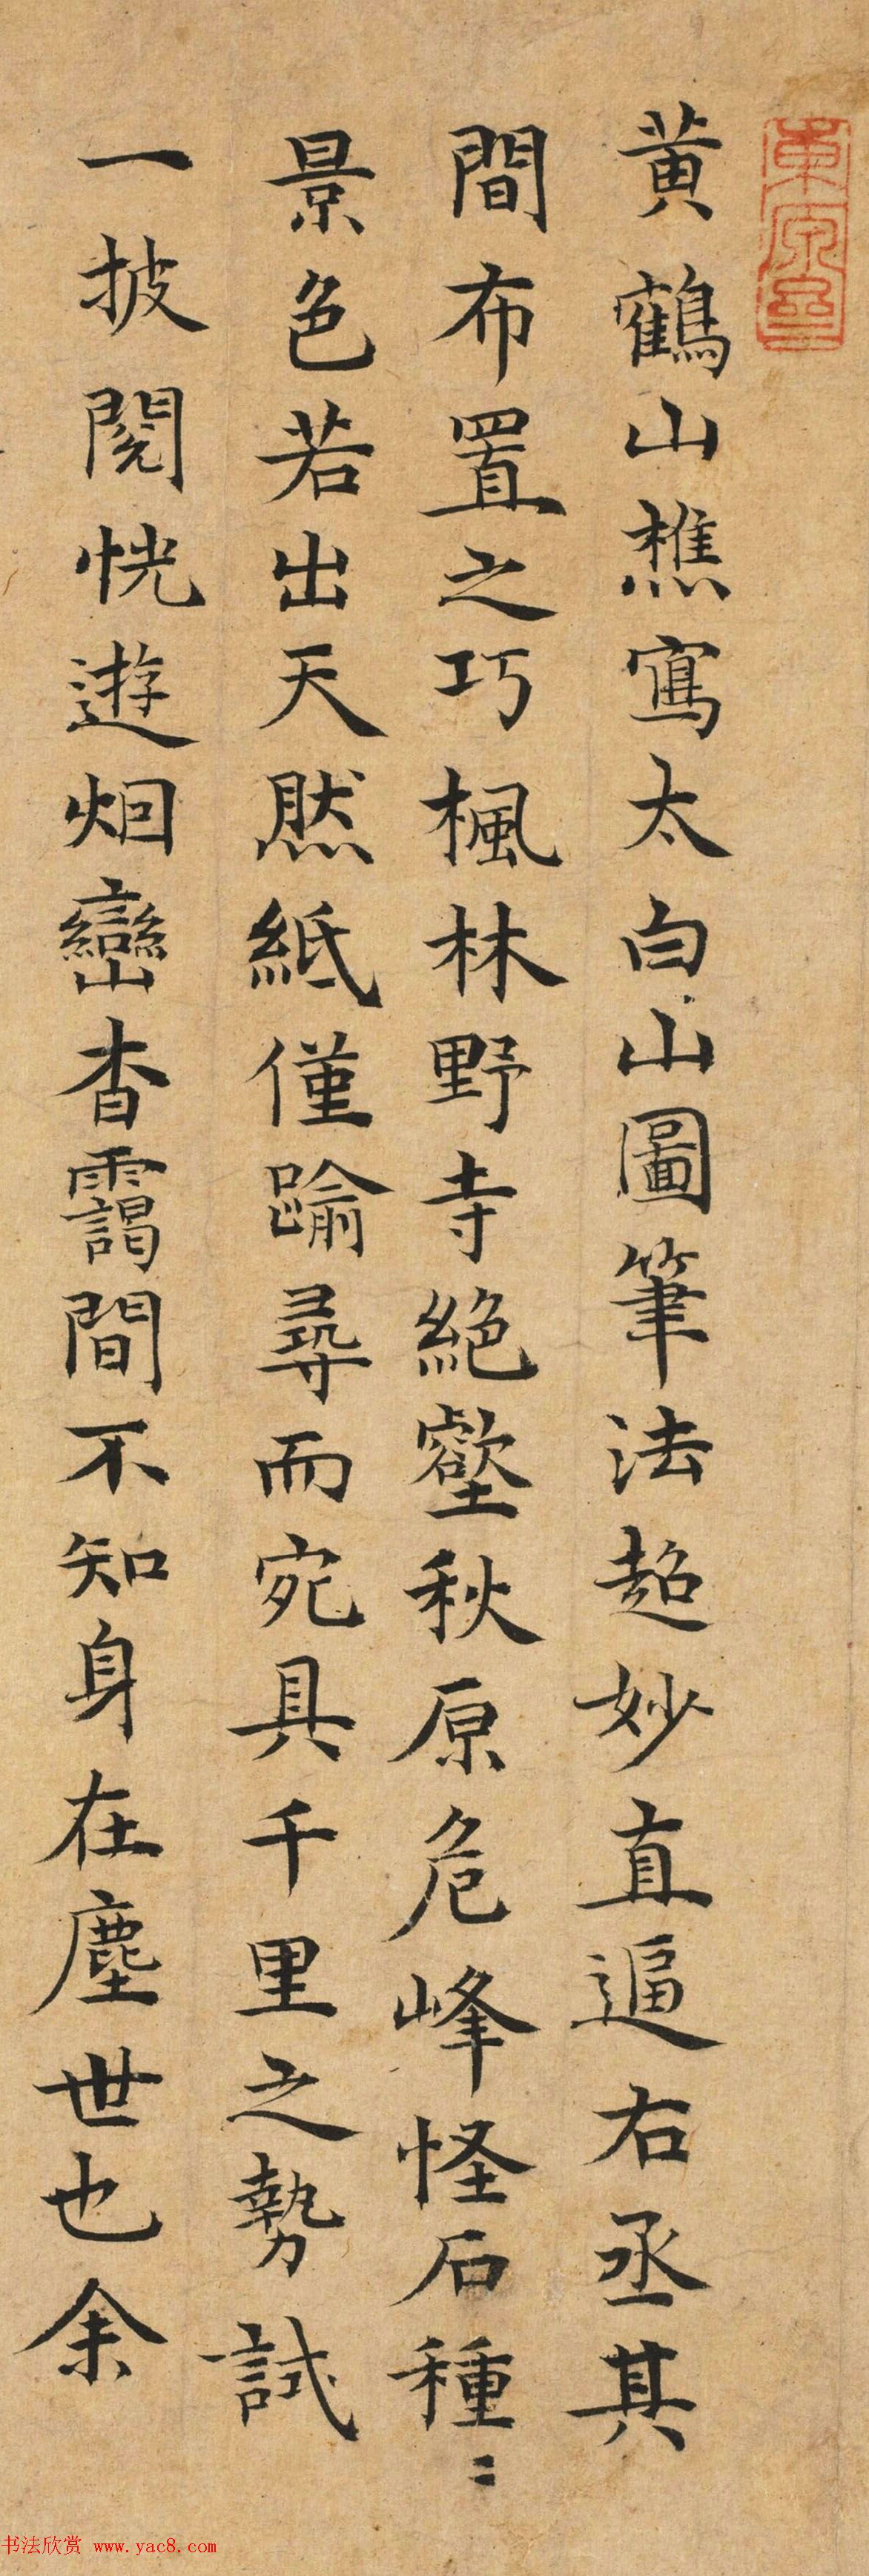 黄鶴山樵寫太白山圖筆法超妙直逼右丞其
間布置之巧楓林野寺絶壑秋原危峰怪石種〻
景色若出天然紙僅踰尋而宛具千里之勢試
一披閱恍遊烟巒杳靄間不知身在塵世也余
书法欣赏 www.yac8.com